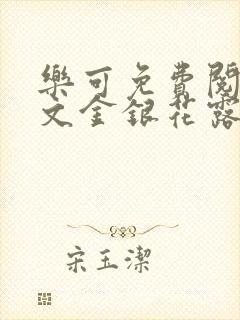 樂可免費閱
文金銀花露
宋玉潔